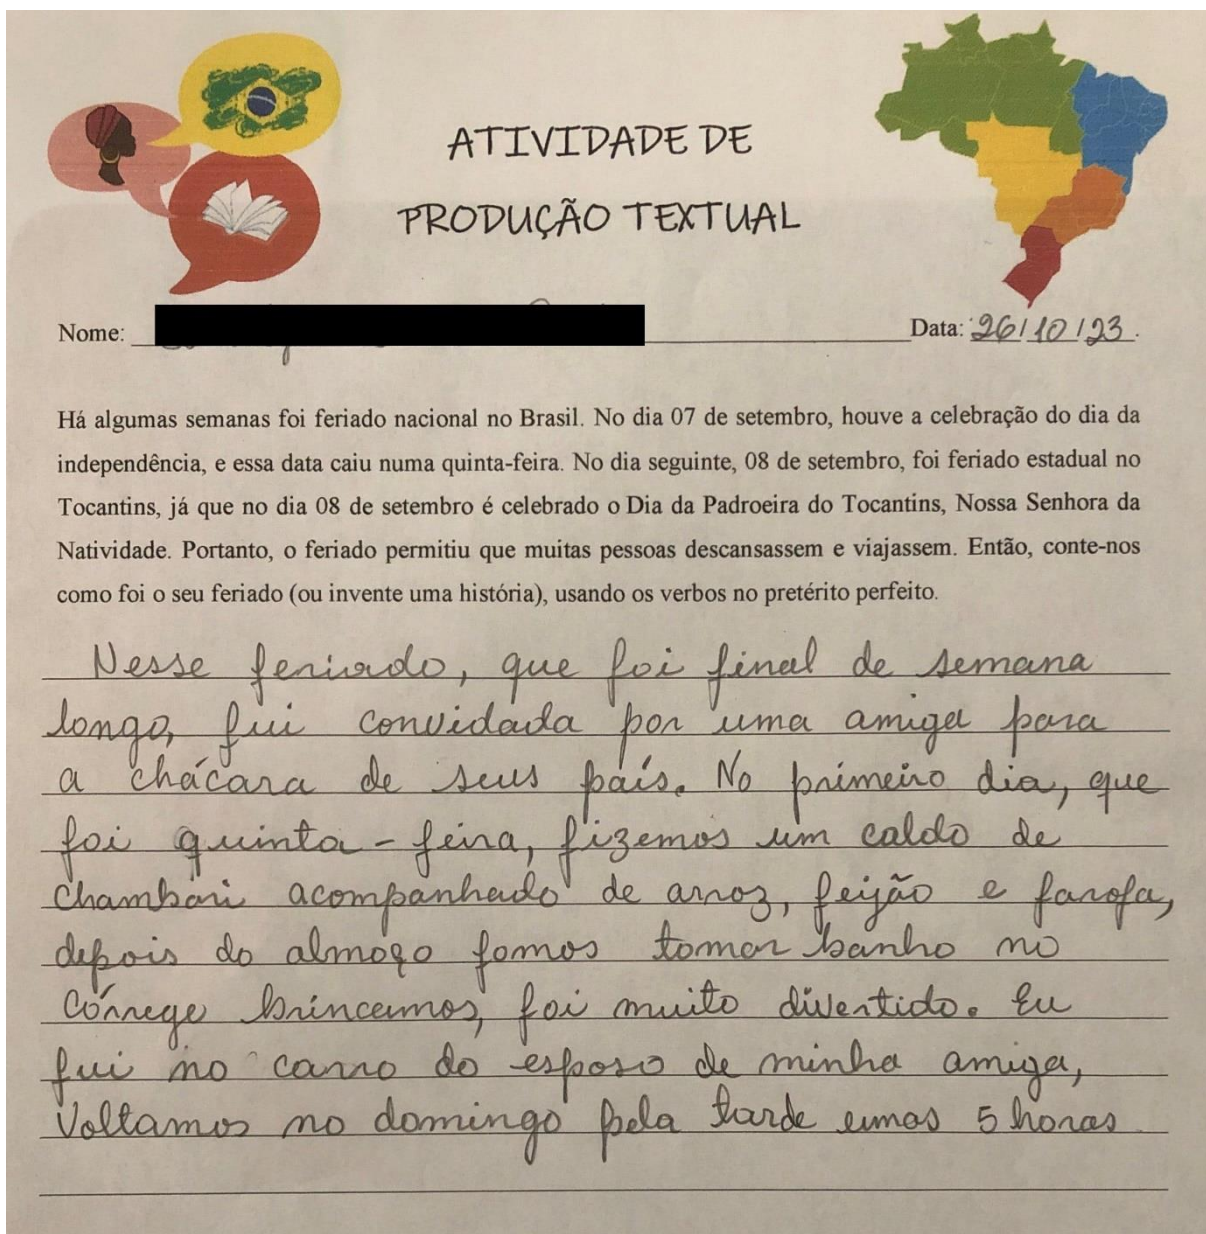 ATIVIDADE DE
PRODUÇÃO TEXTUAL
Nome:
Data: 26/10/23.
Há algumas semanas foi feriado nacional no Brasil. No dia 07 de setembro, houve a celebração do dia da
independência, e essa data caiu numa quinta-feira. No dia seguinte, 08 de setembro, foi feriado estadual no
Tocantins, já que no dia 08 de setembro é celebrado o Dia da Padroeira do Tocantins, Nossa Senhora da
Natividade. Portanto, o feriado permitiu que muitas pessoas descansassem e viajassem. Então, conte-nos
como foi o seu feriado (ou invente uma história), usando os verbos no pretérito perfeito.
Nesse feriado, que foi final de semana
longo, fui convidada por uma amiga para
a chácara de seus país. No primeiro dia, que
foi quinta-feira, fizemos um caldo de
chambari acompanhado de arroz, feijão e farofa,
depois do almoço fomos tomar banho no
Córrego brincamos, foi muito divertido. Eu
fui no carro do esposo de minha amiga,
Voltamos no domingo pela tarde umas 5 horas